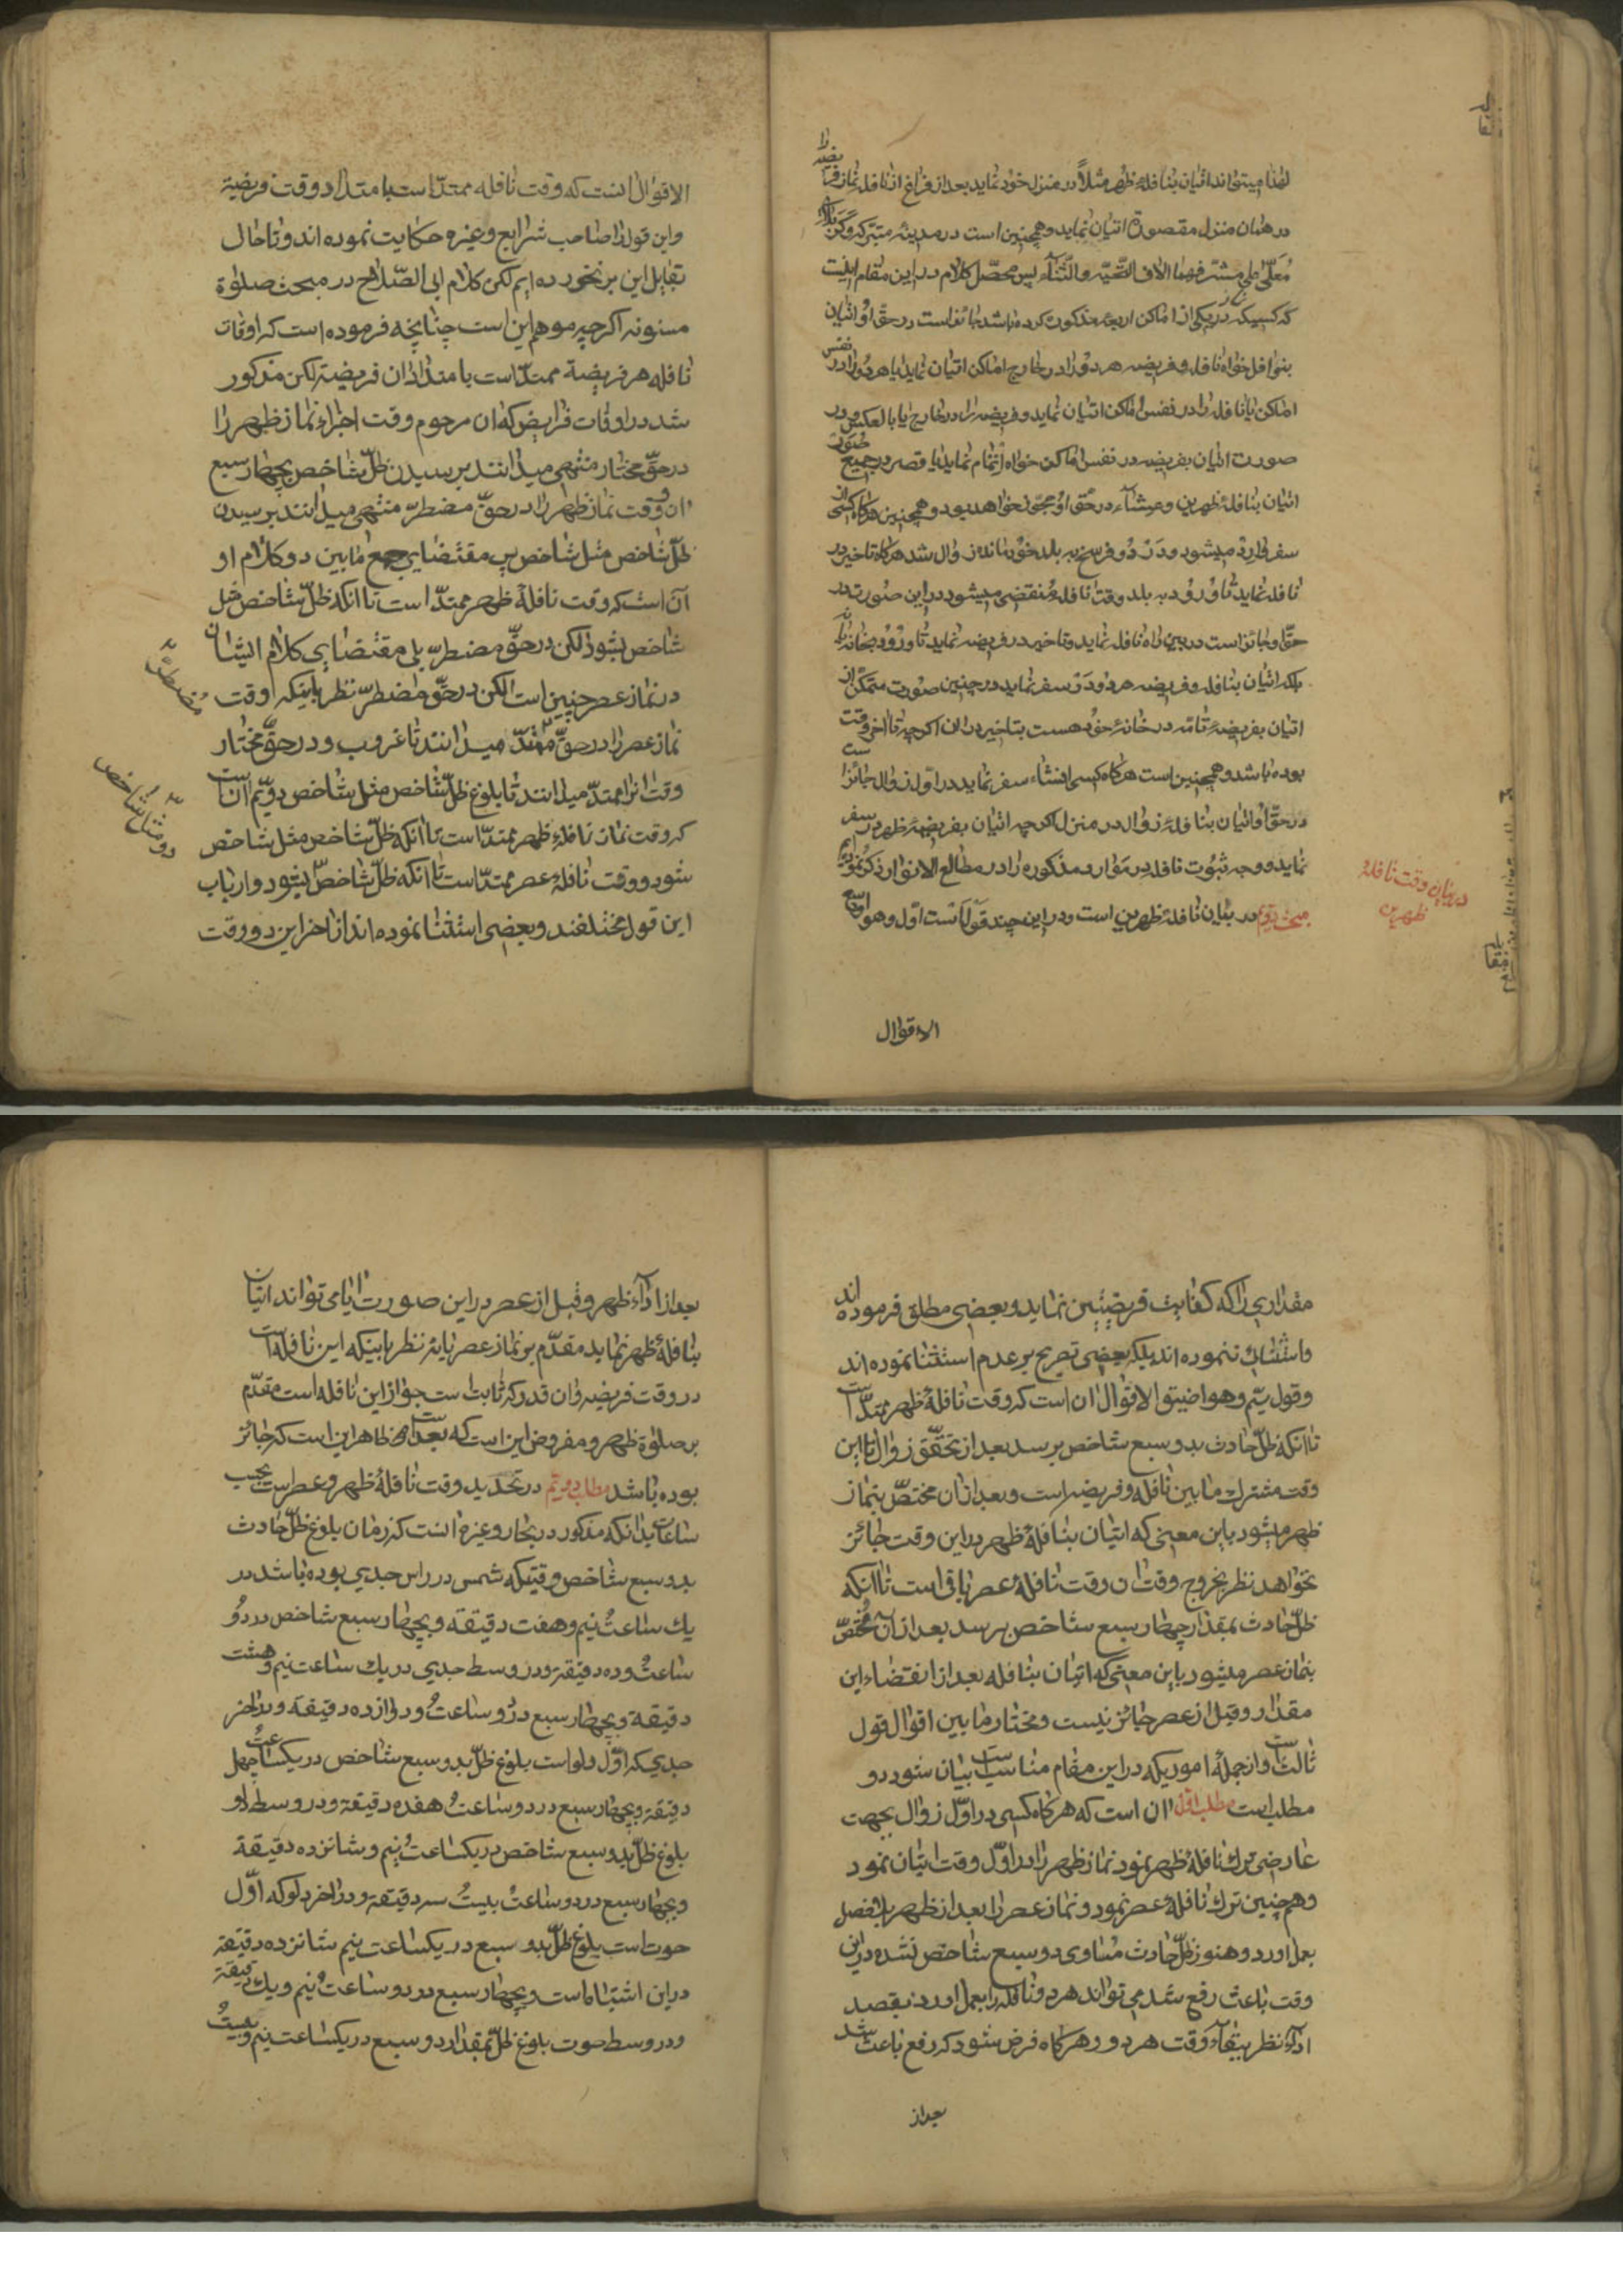 لهذا میتواند اتیان بنافلهٔ ظهر مثلاً در منزل خود نماید بعد از فراغ از نافله نماز فریضه را
در همان منزل مقصورة اتیان نماید و همچنین است در مدینه متبرکه و کربلای
مُعلّی علی مشرّفهما الاف التحیّه والثّنآء پس محصّل کلام در این مقام اینست
که کسیکه در یکی از اماکن اربعهٔ مذکوره بوده باشد جائز است در حقّ او اتیان
بنوافل خواه نافله و فریضه هر دو را در خارج اماکن اتیان نماید یا هر دو را در نفس
اماکن یا نافله را در نفس اماکن اتیان نماید و فریضه را در خارج یا بالعکس و در
صورت اتیان بفریضه در نفس اماکن خواه اتمام نماید یا قصر در جمیع صور
اتیان بنافلهٔ ظهرین و عشآء در حق او مجزی خواهد بود و همچنین هرگاه کسی از
سفر وارد میشود و در دو فرسخی به بلد خود مانده زوال شد هرگاه تاخیر در
نافله نماید تا ورود به بلد وقت نافله منقضی میشود در این صورت در
حقّ او جائز است در بین راه نافله نماید و تاخیر در فریضه نماید تا ورود بخانه
بلکه اتیان بنافله و فریضه هر دو در سفر نماید در چنین صورت متمکّن از
اتیان بفریضهٔ تامّه در خانهٔ خود هست بتاخیر دران اگر چه تا اخر وقت
بوده باشد و همچنین است هرگاه کسی انشاء سفر نماید در اوّل زوال جائز است
در حقّ او اتیان بنافلهٔ زوال در منزل اگر چه اتیان بفریضهٔ ظهر در سفر
نماید و وجه ثبوت نافله در موارد مذکوره را در مطالع الانوار ذکر نموده‌ایم
مبحث دویّم در بیان نافلهٔ ظهرین است و در این چند قول است اوّل و هو اوسع
در بیان وقت نافلهٔ
ظهرین
الاقوال
الاقوال انست که وقت نافله ممتدّ است بامتداد وقت فریضة
و این قول را صاحب شرایع و غیره حکایت نموده اند و تا حال
بقایل این برنخورده ایم لکن کلام ابی الصّلاح در مبحث صلوة
مسنونه اگر چه موهم این است چنانچه فرموده است که اوقات
نافله هر فریضة ممتدّ است بامتداد ان فریضة لکن مذکور
شد در اوقات فرایض که ان مرحوم وقت اجزاء نماز ظهر را
در حقّ مختار منتهی میدانند برسیدن ظلّ شاخص بچهار سبع
ان و وقت نماز ظهر را در حقّ مضطرّ منتهی میدانند برسیدن
ظلّ شاخص مثل شاخص پس مقتضای جمع مابین دو کلام او
آن است که وقت نافلهٔ ظهر ممتدّ است تا انکه ظلّ شاخص مثل
شاخص بشود لکن در حقّ مضطرّ بلی مقتضای کلام ایشان
در نماز عصر چنین است لکن در حقّ مضطرّ نظر باینکه وقت
نماز عصر را در حقّ ممتدّ میدانند تا غروب و در حقّ مختار
مُضطرّ
وقت انرا ممتدّ میدانند تا بلوغ ظلّ شاخص مثل شاخص دویّم ان است
که وقت نماز نافلهٔ ظهر ممتدّ است تا انکه ظلّ شاخص مثل شاخص
دو مثل شاخص
شود و وقت نافلهٔ عصر ممتدّ است تا انکه ظلّ شاخص بشود و ارباب
این قول مختلفند و بعضی استثنا نموده اند از اخر این دو وقت
مقداری را که کفایت فریضتین نماید و بعضی مطلق فرموده اند
و استثناء ننموده اند بلکه بعضی تصریح بر عدم استثنا نموده اند
و قول سیّم و هو اضیق الاقوال ان است که وقت نافلهٔ ظهر ممتدّ است
تا انکه ظلّ حادث بدو سبع شاخص برسد بعد از تحقّق زوال تا این
وقت مشترک مابین نافله و فریضه است و بعد از ان مختصّ بنماز
ظهر میشود باین معنی که اتیان بنافلهٔ ظهر در این وقت جائز
نخواهد نظر بخروج وقت ان وقت نافلهٔ عصر باقی است تا انکه
ظلّ حادث بمقدار چهار سبع شاخص برسد بعد از ان مختصّ
بنماز عصر میشود باین معنی که اتیان بنافله بعد از انقضاء این
مقدار و قبل از عصر جائز نیست و مختار مابین اقوال قول
ثالث است و از جملهٔ اموریکه در این مقام مناسب است بیان شود دو
مطلب است مطلب اوّل ان است که هرگاه کسی در اوّل زوال بجهت
عارضی ترک نافلهٔ ظهر نمود نماز ظهر را در اوّل وقت اتیان نمود
و هم چنین ترک نافلهٔ عصر نمود و نماز عصر را بعد از ظهر بلا فصل
بعمل اورد و هنوز ظلّ حادث مساوی دو سبع شاخص نشده در این
وقت باعث رفع شد می تواند هر دو نافله را بعمل اورد بقصد
ادآء نظر ببقآء وقت هر دو و هرگاه فرض شود که رفع باعث شد
بعد از
بعد از ادآء ظهر و قبل از عصر در این صورت ایا می تواند اتیان
بنافلهٔ ظهر نماید مقدّم بر نماز عصر یا نه نظر باینکه این نافله است
در وقت فریضه و ان قدر که ثابت است جواز این نافله است مقدّم
بر صلوة ظهر و مفروض این است که بعد است ظاهر این است که جائز
بوده باشد مطلب دویّم در تحدید وقت نافلهٔ ظهر و عصر است بحسب
ساعات بدانکه مذکور در بحار و غیره انست که زمان بلوغ ظلّ حادث
بدو سبع شاخص وقتیکه شمس در راس جدی بوده باشد در
یک ساعتُ نیم و هفت دقیقه و بچهار سبع شاخص در دو
ساعتُ و ده دقیقة و در وسط جدی در یک ساعت نیم و هشت
دقیقة و بچهار سبع در دو ساعتُ و دوازده دقیقة و در اخر
جدی که اوّل دلو است بلوغ ظلّ بدو سبع شاخص در یکساعتُ چهل
دقیقة و بچهار سبع در دو ساعتُ هفده دقیقة و در وسط دلو
بلوغ ظلّ بدو سبع شاخص در یکساعتُ نیم و شانزده دقیقة
و بچهار سبع در دو ساعتُ بیستُ سه دقیقة و در اخر دلو که اوّل
حوت است بلوغ ظلّ بدو سبع در یکساعت نیم شانزده دقیقة
در این اشتباه است و بچهار سبع در دو ساعتُ نیم و یک دقیقة
و در وسط حوت بلوغ ظلّ بمقدار دو سبع در یکساعت نیم و بیستُ